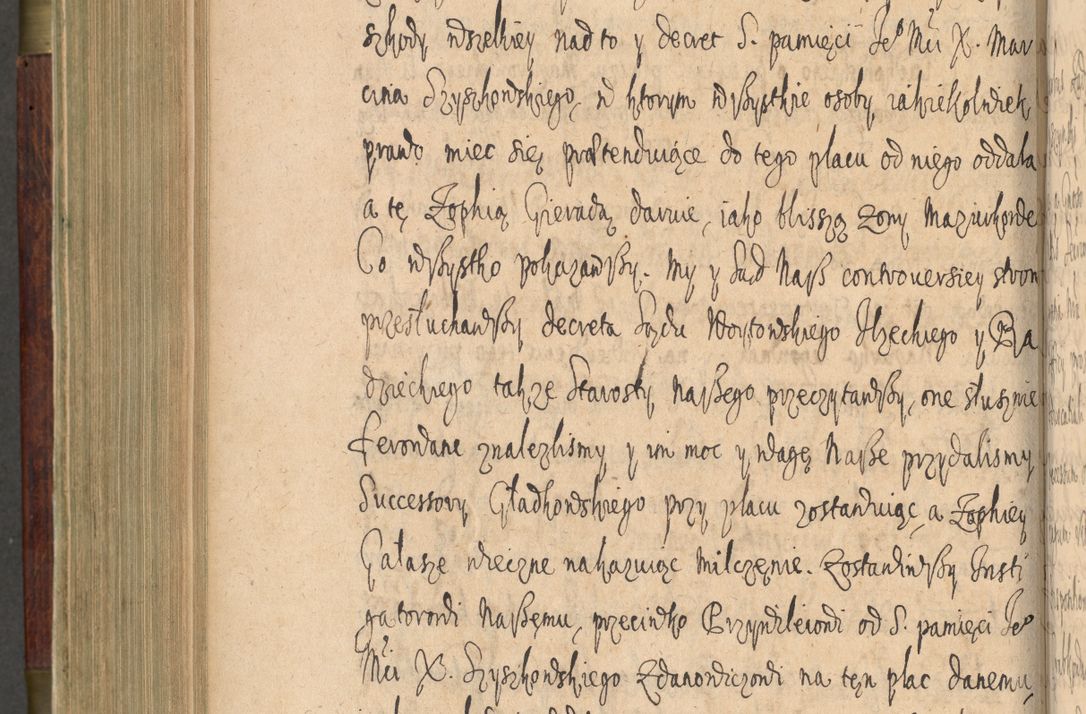 szkody wszelkiey nad to y decret S. pamięci Jeº Mći X. Mar
cina Szyszkowskiego, w ktorym wszystkie osoby iakiekolwiek
prawo miec się prætenduiące do tego placu od niego oddala
a tę Zophią Gieradą daruie, iako bliszszą zony Maziurkorde
Co wszystko pokazawszy. My y Sąd Nasz controuersiey stron
przesłuchawszy decreta Sądu Woytowskiego Ilzeckiego y Ra
dzieckiego takze Starosty naszego przeczytawszy, one słusznie
ferowane znalezlismy y im moc y wagę Nasze przydalismy
Successory Gładkowskiego przy placu zostawuiąc, a Zophiey
Gałasze wieczne nakazuiąc milczęnie. Zostawiwszy Insti
gatorowi Naszemu, przeciwko Przywileiowi od S. pamięci Jeº
Mći X. Szyszkowskiego Zdanowiczowi na tęn plac danemu,